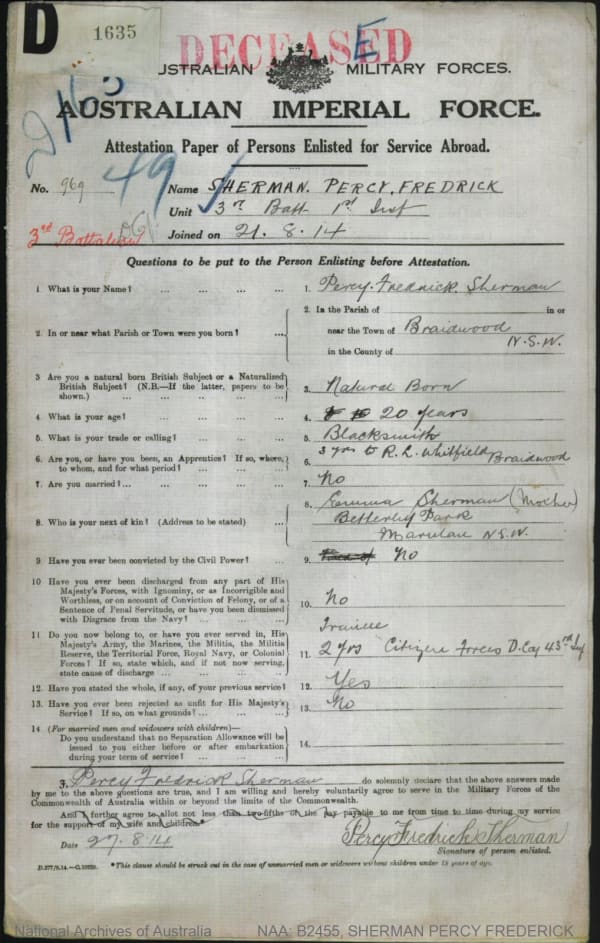 D
1635
DECEASED
E
AUSTRALIAN MILITARY FORCES.
AUSTRALIAN IMPERIAL FORCE.
Attestation Paper of Persons Enlisted for Service Abroad.
49
No. 969 Name SHERMAN. PERCY, FREDRICK
Unit 3rd Batt 1st Inf
3rd Battalion
Joined on 21. 8. 14
Questions to be put to the Person Enlisting before Attestation.
1 What is your Name? ... ... ... ... 1. Percy. Fredrick. Sherman
2. In or near what Parish or Town were you born? ... 2. In the Parish of in or
near the Town of Braidwood
N.S.W.
in the County of
3 Are you a natural born British Subject or a Naturalized
British Subject? (N.B.—If the latter, papers to be
shown.) ... ... ... ... 3. Natural Born
4. What is your age? ... ... ... ... 4. 20 years
5. What is your trade or calling? ... ... ... 5. Blacksmith
6. Are you, or have you been, an Apprentice? If so, where,
to whom, and for what period? ... ... ... 6. 3 yrs to R. L. Whitfield Braidwood
7. Are you married?... ... ... ... ... 7. No
8. Who is your next of kin? (Address to be stated) ... 8. Emma Sherman (Mother)
Betterley Park
Marulan N.S.W.
9 Have you ever been convicted by the Civil Power? ... 9. No
10 Have you ever been discharged from any part of His
Majesty's Forces, with Ignominy, or as Incorrigible and
Worthless, or on account of Conviction of Felony, or of a
Sentence of Penal Servitude, or have you been dismissed
with Disgrace from the Navy? ... ... ... 10. No
11 Do you now belong to, or have you ever served in, His
Majesty's Army, the Marines, the Militia, the Militia
Reserve, the Territorial Force, Royal Navy, or Colonial
Forces? If so, state which, and if not now serving,
state cause of discharge ... ... ... ... Trainee
11. 2 yrs Citizen Forces D. Coy 43rd Inf
12. Have you stated the whole, if any, of your previous service? 12. Yes
13. Have you ever been rejected as unfit for His Majesty's
Service? If so, on what grounds? ... ... ... 13. No
14 (For married men and widowers with children)—
Do you understand that no Separation Allowance will be
issued to you either before or after embarkation
during your term of service? ... ... ... 14.
I, Percy Fredrick Sherman do solemnly declare that the above answers made
by me to the above questions are true, and I am willing and hereby voluntarily agree to serve in the Military Forces of the
Commonwealth of Australia within or beyond the limits of the Commonwealth.
And I further agree to allot not less than two-fifths of the pay payable to me from time to time during my service
for the support of my wife and children*
Date 27. 8. 14
Percy Fredrick Sherman
Signature of person enlisted.
D.277/8.14.—C.10289. *This clause should be struck out in the case of unmarried men or widowers without children under 18 years of age.
National Archives of Australia NAA: B2455, SHERMAN PERCY FREDERICK